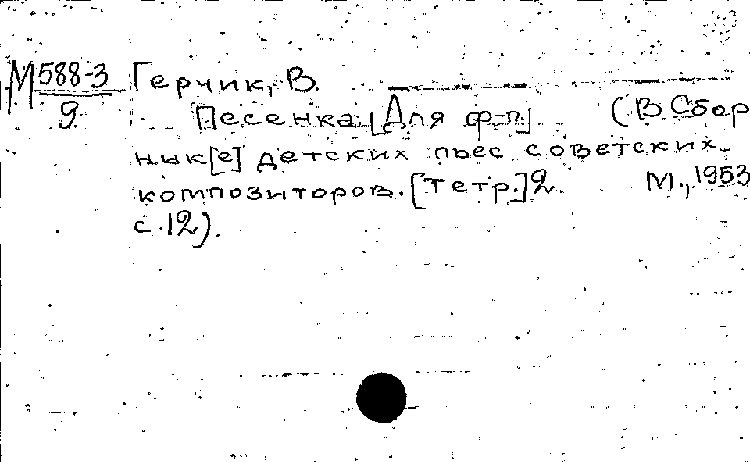 М588-3 Герчик, В.
9
Песенка. [Для ф-п.] (В Сбор
нык[е] детских пьес советских
композиторов. [Тетр.] 2. М., 1953
с. 12).